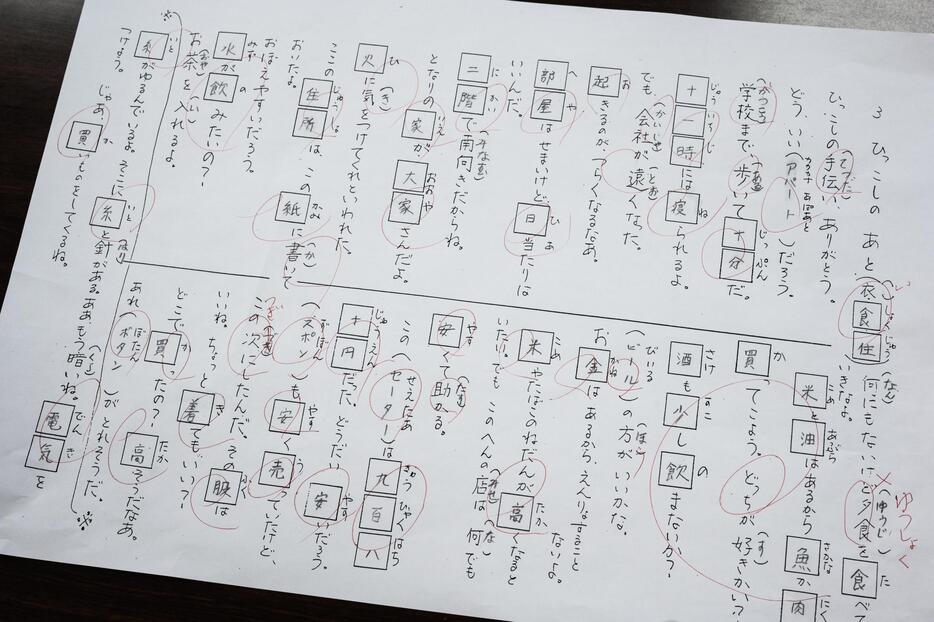 3 ひっこしのあと (衣食住)
ひっこしの手伝い、ありがとう。
どう、いい(アパート)だろう。
学校まで、歩いて十分だ。
十一時には寝られるよ。
でも、会社が遠くなった。
起きるのが、つらくなるなあ。
部屋はせまいけど、日当たりは
いいんだ。
二階で南向きだからね。
となりの家が大家さんだよ。
火に気をつけてくれといわれた。
ここの住所は、この紙に書いて
おいたよ。
おぼえやすいだろう。
水が飲みたいの?
お茶を入れるよ。
何にもないけど夕食を食べて
ゆうしょく
いきなよ。
米と油はあるから魚か肉
買ってこよう。どっちが好きか?
酒も少し飲まないか?
(ビール)の方がいいかな。
お金はあるから、えんりょすること
ないよ。
米やたばこのねだんが高くなると
いたい。でもこのへんの店は何でも
安くて助かる。
この(セーター)は九百八
十円だ。どうだい安いだろう。
(ズボン)も安く売っていたけど、
この次にしたんだ。その服は
いいね。ちょっと着てもいい?
どこで買ったの?高そうだなあ。
あれ(ボタン)がとれそうだ。※
※糸がゆるんでいるよ。そこに糸と針がある。ああもう暗いね。電気を
つけよう。
じゃあ、買いものをしてくるね。